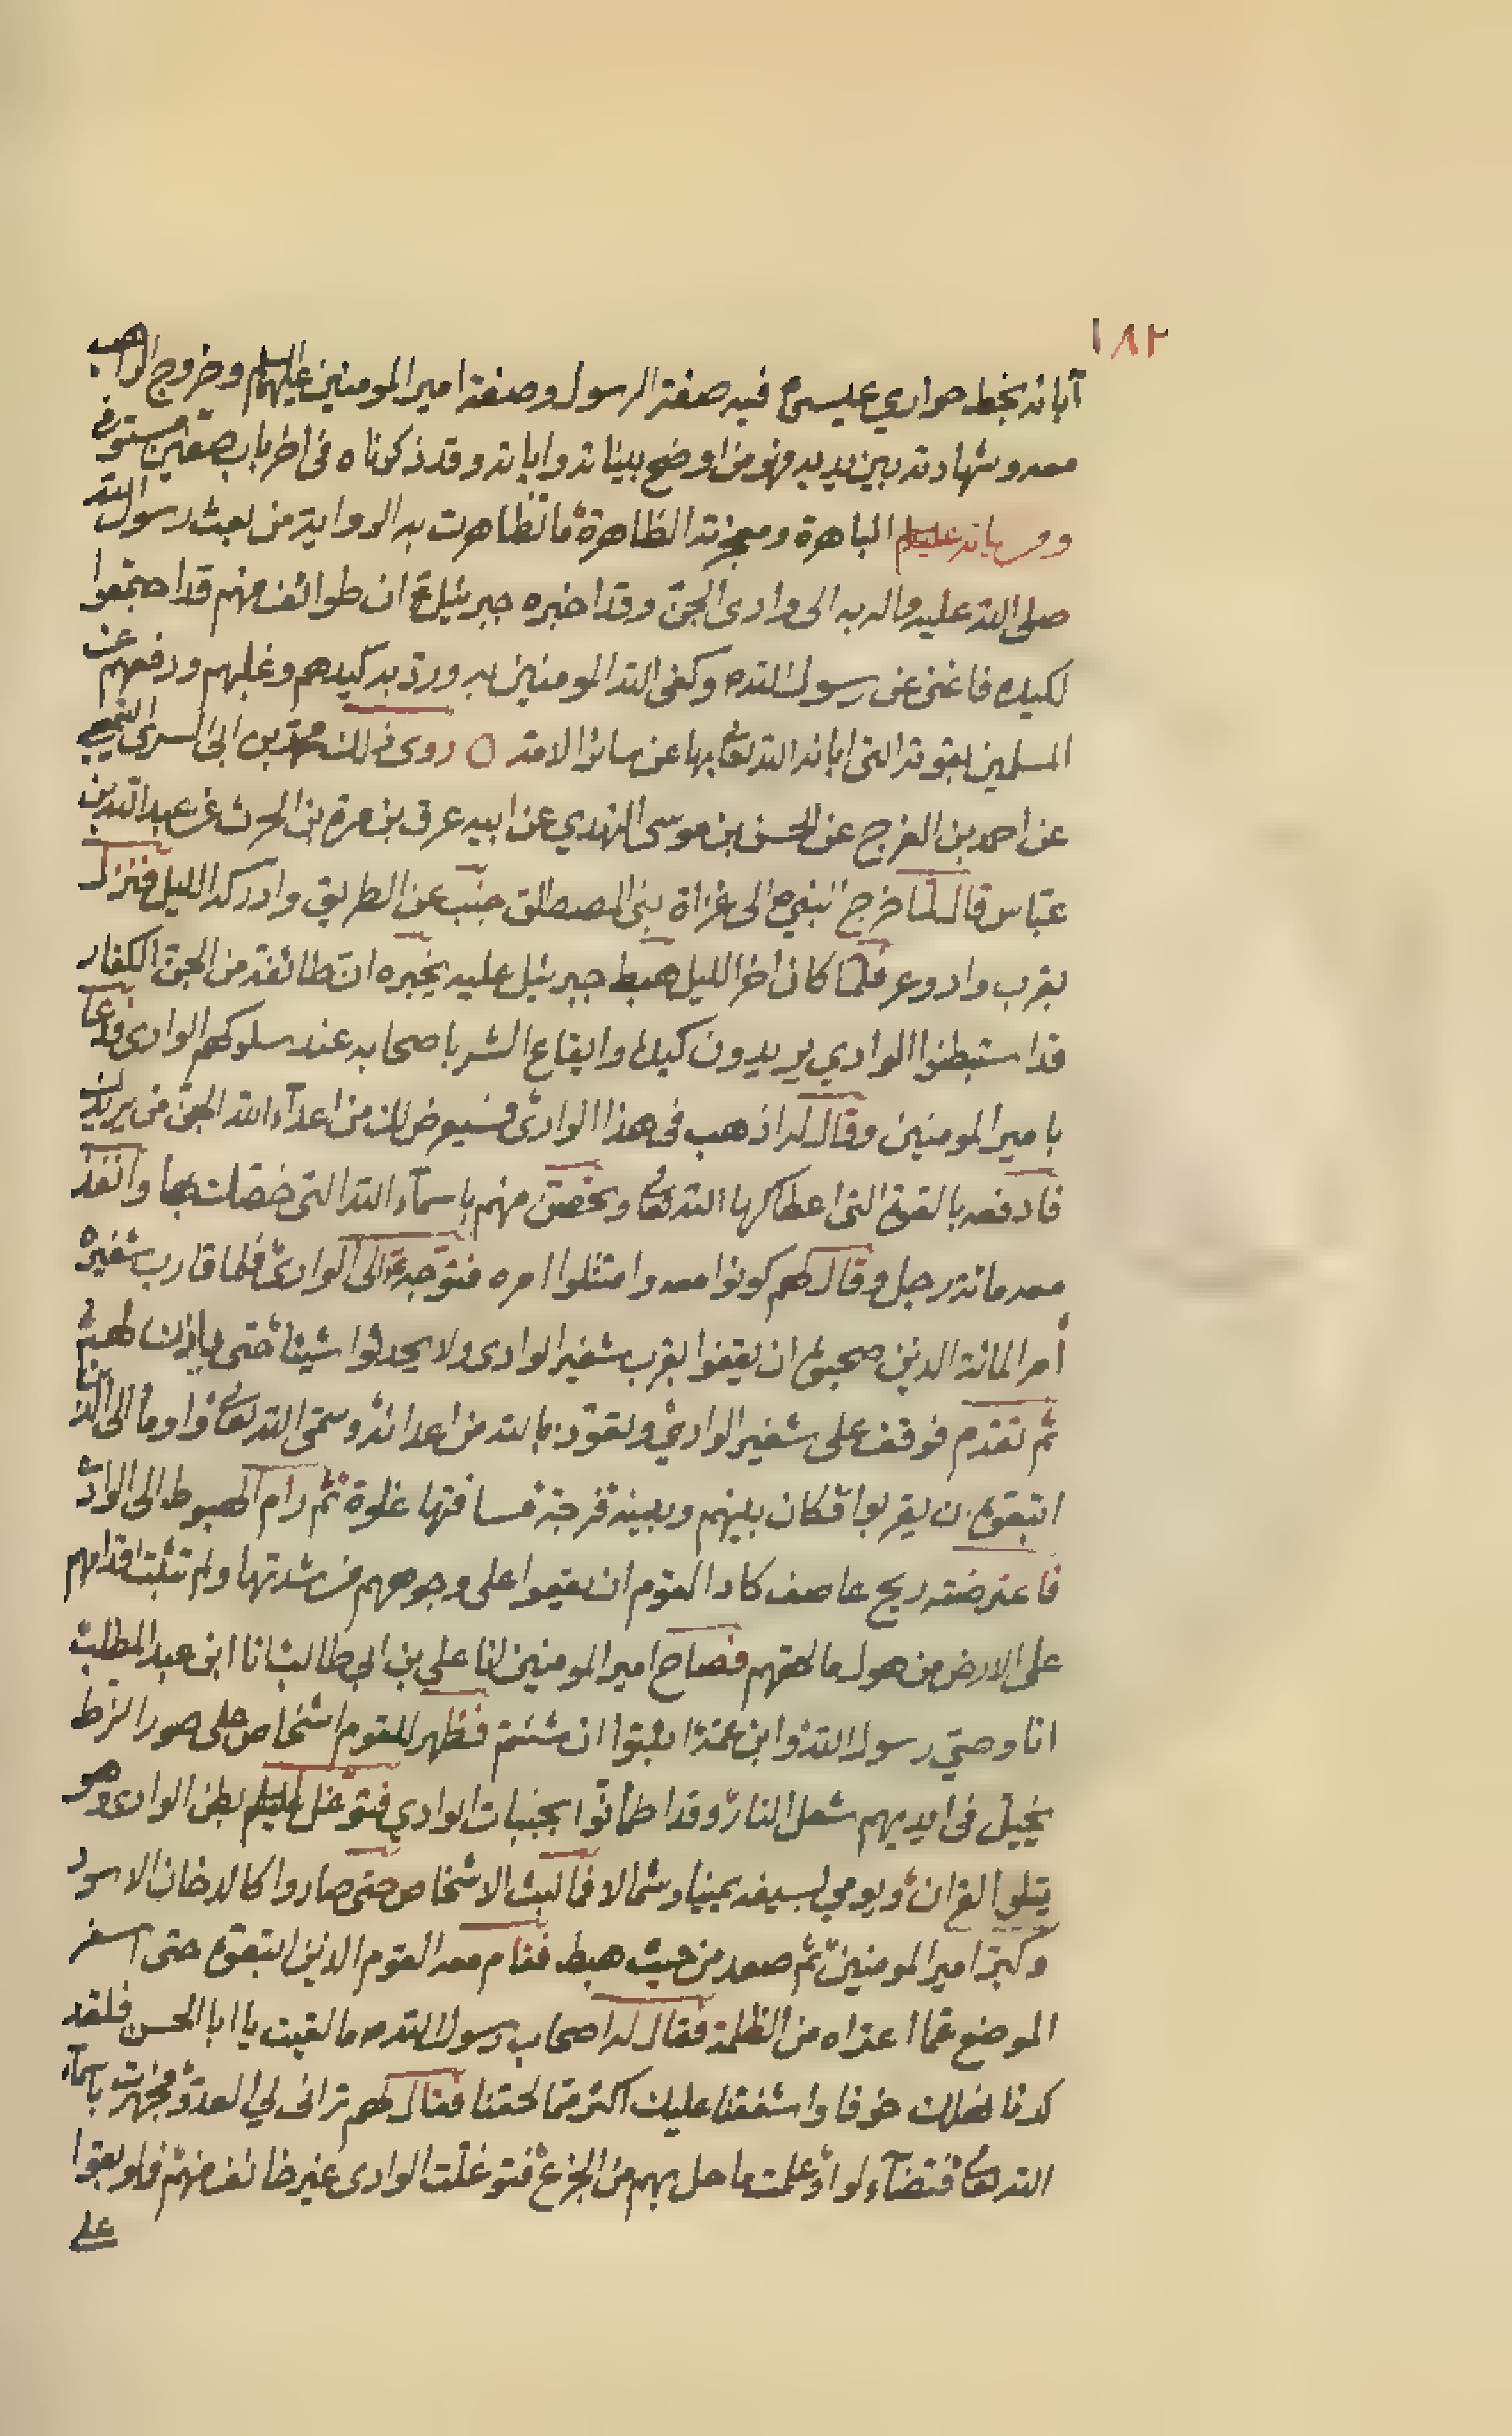 ١٨٢
آبائه بخط حواري عيسى ع فيه صفة الرسول وصفة امير المومنين عليهما السلم وخروج الراهب
معه وشهادته بين يديه فهو من اوضح بيناته واياته وقد ذكرناه فى اخر باب صفين مستوفى
ومن اياته عليه السلم الباهرة ومعجزته الظاهرة ما تظاهرت به الرواية من بعث رسول الله
صلى الله عليه واله به الى وادى الجن وقد اخبره جبرئيل ع ان طوائف منهم قد اجتمعوا
لكيده فاغنى عن رسول الله ص وكفى الله المومنين به ورد به كيدهم وغلبهم ودفعهم عن
المسلمين بقوته التى ابانه الله تعالى بها عن سائر الامة ○ روى ذلك محمد بن ابى السرى التميمي
عن احمد بن الفرج عن الحسن بن موسى النهدي عن ابيه عن بن مرة بن الحرث عن عبد الله بن
عباس قال لما خرج النبي ص الى غزاة بنى المصطلق جنب عن الطريق وادركه الليل فنزل
بقرب واد وعر فلما كان اخر الليل هبط جبرئيل عليه يخبره ان طائفة من الجن الكفار
قد استبطنوا الوادي يريدون كيده وايقاع الشر باصحابه عند سلوكهم الوادى فدعا
بامير المومنين وقال له اذهب فى هذا الوادى فسيعرض لك من اعدآء الله الجن من يريدك
فادفعه بالقوة التى اعطاكها الله تعالى وتحصن منهم باسمآء الله التى خصك بها وانفذ
معه مائة رجل وقال لهم كونوا معه وامتثلوا امره فتوجه ع الى الوادى فلما قارب شفيره
أمر المائة الذين صحبوه ان يقفوا بقرب شفير الوادى ولا يحدثوا شيئا حتى ياذن لهم
ثم تقدم فوقف على شفير الوادي وتعوذ بالله من اعدائه وسمى الله تعالى واومأ الى الذين
اتبعوه ان يقربوا فكان بينهم وبينه فرجة مسافتها غلوة ثم رام الهبوط الى الوادى
فاعترضته ريح عاصف كاد القوم ان يقعوا على وجوههم من شدتها ولم تثبت اقدامهم
على الارض من هول ما لحقهم فصاح امير المومنين انا علي بن ابي طالب انا ابن عبد المطلب
انا وصي رسول الله وابن عمه اثبتوا ان شئتم فظهر للقوم اشخاص على صور الزط
يخيل فى ايديهم شعل النار وقد اطمأنوا بجنبات الوادي فتوغل عليه السلم بطن الوادى وهو
يتلو القران ويومي بسيفه يمينا وشمالا فما لبث الاشخاص حتى صاروا كالدخان الاسود
وكبر امير المومنين ثم صعد من حيث هبط فقام معه القوم الذين اتبعوه حتى اسفر
الموضع عما اعتراه من الظلمة فقال له اصحاب رسول الله ص ما لقيت يا ابا الحسن فلقد
كدنا نهلك خوفا واشفقنا عليك اكثر مما لحقنا فقال لهم تراءى لي العدو فجهرت باسمآء
الله تعالى فتضآءلوا وعلمت ما حل بهم من الجزع فتوغلت الوادى غير خائف منهم فلو بقوا
على